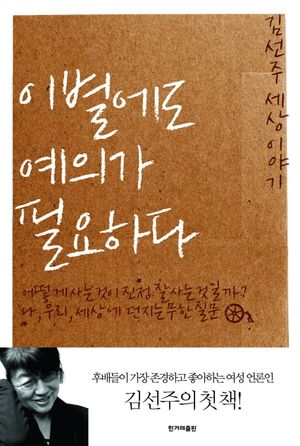 김선주 세상 이야기
이별에도
예의가
필요하다
어떻게 사는 것이 진정 잘 사는 것일까?
나, 우리, 세상에 던지는 무한 질문
후배들이 가장 존경하고 좋아하는 여성 언론인
김선주의 첫 책!
한겨레출판